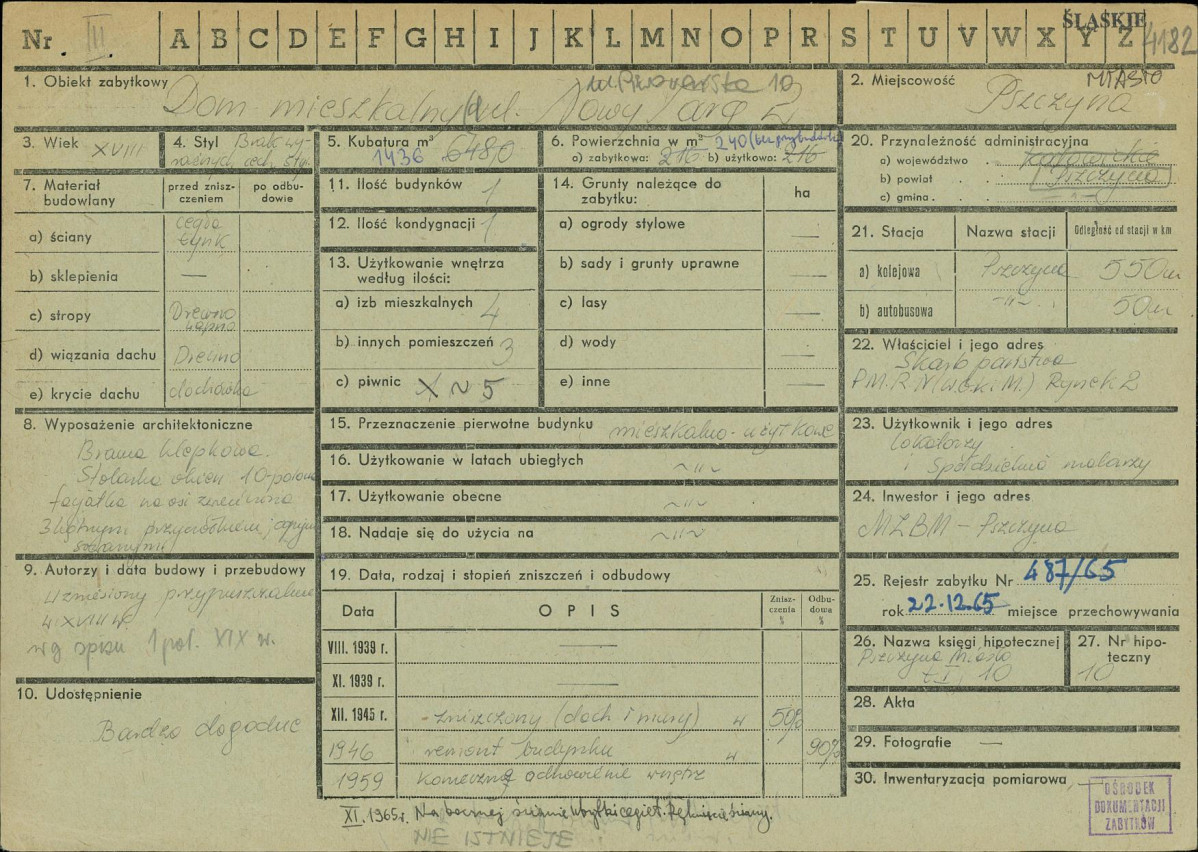 ŚLĄSKIE
Nr III A B C D E F G H I J K L M N O P R S T U V W X Y Z 4182
1. Obiekt zabytkowy
ul. Piwowarska 10
Dom mieszkalny ul. Nowy Targ 2
2. Miejscowość MIASTO
Pszczyna
3. Wiek XVIII
4. Styl Brak wy-
raźnych cech styl.
5. Kubatura m³ 6480
1436
6. Powierzchnia w m² 240 (bez przybudówki)
a) zabytkowa: 216 b) użytkowo: 216
20. Przynależność administracyjna
a) województwo . . katowickie
b) powiat . . . Pszczyna
c) gmina . . . . ~"~
7. Materiał budowlany
przed znisz-
czeniem
po odbu-
dowie
a) ściany cegła
tynk
b) sklepienia —
c) stropy Drewno
d) wiązania dachu Drewno
e) krycie dachu dachówka
11. Ilość budynków 1
12. Ilość kondygnacji 1
13. Użytkowanie wnętrza
według ilości:
a) izb mieszkalnych 4
b) innych pomieszczeń 3
c) piwnic X ~ 5
14. Grunty należące do
zabytku:
ha
a) ogrody stylowe —
b) sady i grunty uprawne —
c) lasy —
d) wody —
e) inne —
21. Stacja Nazwa stacji Odległość od stacji w km
a) kolejowa Pszczyna 550 m
b) autobusowa ~"~ 50 m
22. Właściciel i jego adres
Skarb państwa
P.M.R.N (W.G.K.i M.) Rynek 2
8. Wyposażenie architektoniczne
Brama klepkowa.
Stolarka okien 10-polowa
fasjatka na osi zwieńczona
szczytami
9. Autorzy i data budowy i przebudowy
Wzniesiony przypuszczalnie
w XVIII w
wg spisu 1 poł. XIX w.
10. Udostępnienie
Bardzo dogodne
15. Przeznaczenie pierwotne budynku mieszkalno-użytkowe
16. Użytkowanie w latach ubiegłych ~"~
17. Użytkowanie obecne ~"~
18. Nadaje się do użycia na ~"~
19. Data, rodzaj i stopień zniszczeń i odbudowy
Data OPIS Znisz-
czenia
% Odbu-
dowa
%
VIII. 1939 r. —
XI. 1939 r. —
XII. 1945 r. - zniszczony (dach i mury) w 50%
1946 remont budynku w 90%
1959 Konieczne odnowienie wnętrz
XI. 1965 r. Na bocznej ścianie ubytki cegieł. Pęknięcie ściany.
NIE ISTNIEJE
23. Użytkownik i jego adres
lokatorzy
i Spółdzielnia malarzy
24. Inwestor i jego adres
MZBM - Pszczyna
25. Rejestr zabytku Nr 487/65
rok 22.12.65 miejsce przechowywania
26. Nazwa księgi hipotecznej
Pszczyna Miasto
t. I, 10
27. Nr hipo-
teczny
10
28. Akta
29. Fotografie —
30. Inwentaryzacja pomiarowa
OŚRODEK
DOKUMENTACJI
ZABYTKÓW